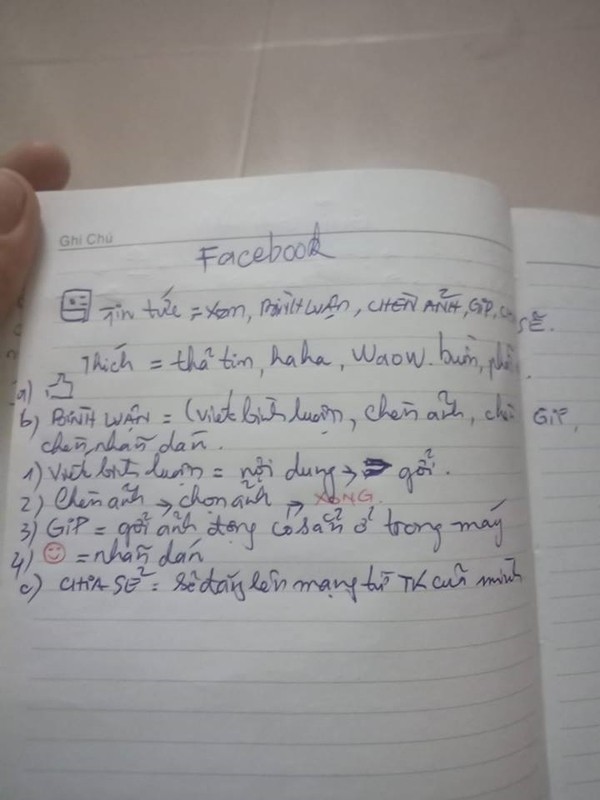 Ghi Chú
Facebook
Tin tức = xem, BÌNH LUẬN, CHÈN ẢNH, GiP, SẼ.
Thích = thả tim, haha, Waow. buồn,
a)
b) BÌNH LUẬN = (viết bình luận, chèn ảnh, GiP,
chèn nhãn dán.
1) Viết bình luận = nội dung → gởi.
2) Chèn ảnh → chọn ảnh → XONG.
3) GiP = gởi ảnh động có sẵn ở trong máy
4) = nhãn dán
c) CHIA SẺ = sẽ đăng lên mạng từ TK của mình